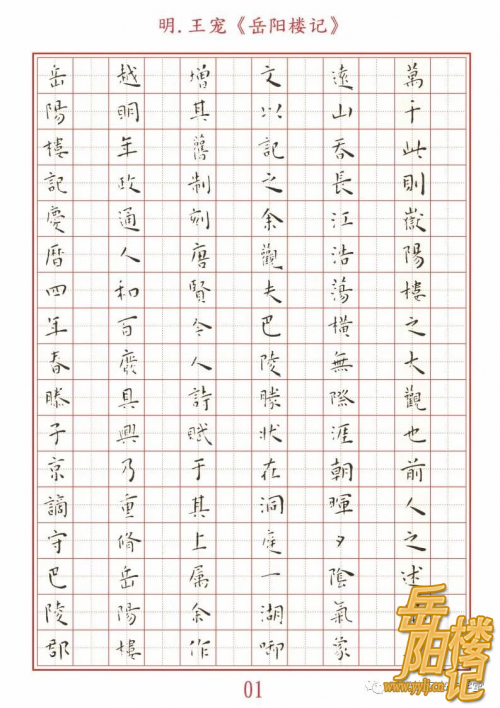 明.王宠《岳阳楼记》
岳陽樓記慶曆四年春滕子京謫守巴陵郡
越明年政通人和百廢具興乃重脩岳陽樓
增其舊制刻唐賢今人詩賦于其上属余作
文以記之余觀夫巴陵勝状在洞庭一湖啣
遠山吞長江浩蕩橫無際涯朝暉夕陰氣象
萬千此則嶽陽樓之大觀也前人之述
01
岳阳楼记
www.yylj.cn